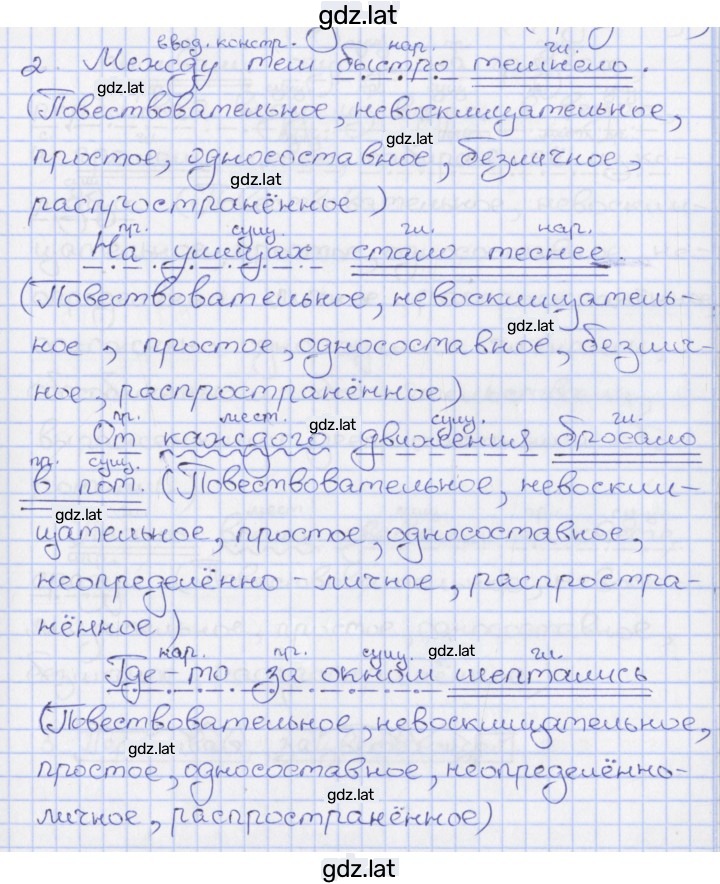 gdz.lat
ввод. констр. нар. гл.
2. Между тем быстро темнело.
gdz.lat
(Повествовательное, невосклицательное,
gdz.lat
простое, односоставное, безличное,
gdz.lat
распространённое)
пр. сущ. гл. нар.
На улицах стало теснее.
(Повествовательное, невосклицатель-
gdz.lat
ное, простое, односоставное, безлич-
ное, распространённое)
пр. мест. gdz.lat сущ. гл.
От каждого движения бросало
пр. сущ.
в пот. (Повествовательное, невоскли-
gdz.lat
цательное, простое, односоставное,
неопределённо-личное, распростра-
нённое)
нар. пр. сущ. gdz.lat гл.
Где-то за окном шептались
(Повествовательное, невосклицательное,
gdz.lat
простое, односоставное, неопределённо-
gdz.lat
личное, распространённое)
gdz.lat